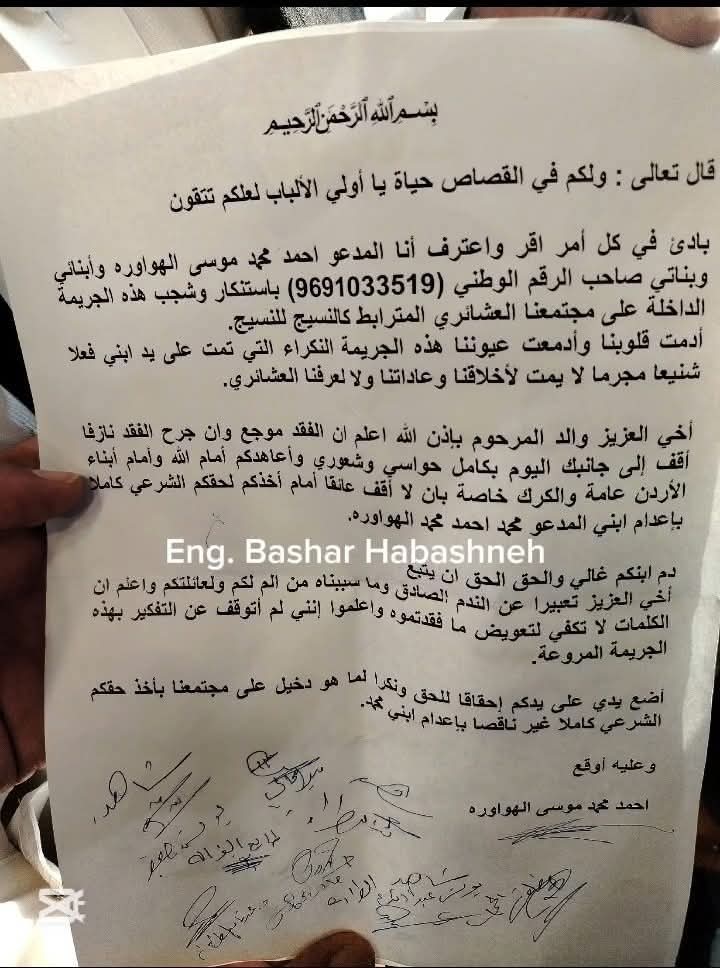 بسم الله الرحمن الرحيم
قال تعالى : ولكم في القصاص حياة يا أولي الألباب لعلكم تتقون
بادئ في كل أمر اقر واعترف أنا المدعو احمد محمد موسى الهواوره وأبنائي
وبناتي صاحب الرقم الوطني (9691033519) باستنكار وشجب هذه الجريمة
الداخلة على مجتمعنا العشائري المترابط كالنسيج للنسيج.
أدمت قلوبنا وأدمعت عيوننا هذه الجريمة النكراء التي تمت على يد ابني فعلا
شنيعا مجرما لا يمت لأخلاقنا وعاداتنا ولا لعرفنا العشائري.
أخي العزيز والد المرحوم بإذن الله اعلم ان الفقد موجع وان جرح الفقد نازفا
أقف إلى جانبك اليوم بكامل حواسي وشعوري وأعاهدكم أمام الله وأمام أبناء
الأردن عامة والكرك خاصة بان لا أقف عائقا أمام أخذكم لحقكم الشرعي كاملا
بإعدام ابني المدعو محمد احمد محمد الهواوره.
Eng. Bashar Habashneh
دم ابنكم غالي والحق الحق ان يتبع
أخي العزيز تعبيرا عن الندم الصادق وما سببناه من الم لكم ولعائلتكم واعلم ان
الكلمات لا تكفي لتعويض ما فقدتموه واعلموا إنني لم أتوقف عن التفكير بهذه
الجريمة المروعة.
أضع يدي على يدكم إحقاقا للحق ونكرا لما هو دخيل على مجتمعنا بأخذ حقكم
الشرعي كاملا غير ناقصا بإعدام ابني محمد.
وعليه أوقع
احمد محمد موسى الهواوره
شاهد
شاهد